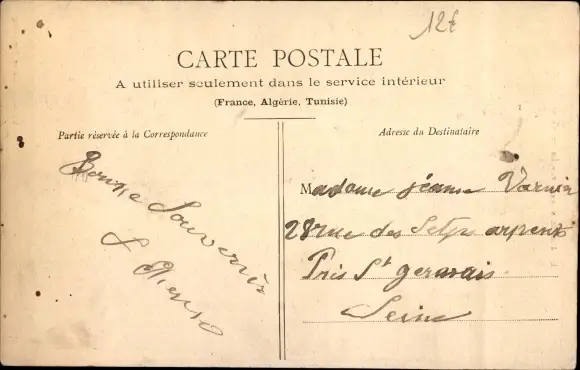 12€
CARTE POSTALE
A utiliser seulement dans le service intérieur
(France, Algérie, Tunisie)
Partie réservée à la Correspondance
Adresse du Destinataire
Bonne Souvenir
Madame jéanne Varnier
28 rue des Setps arpents
Prés St gervais
Seine